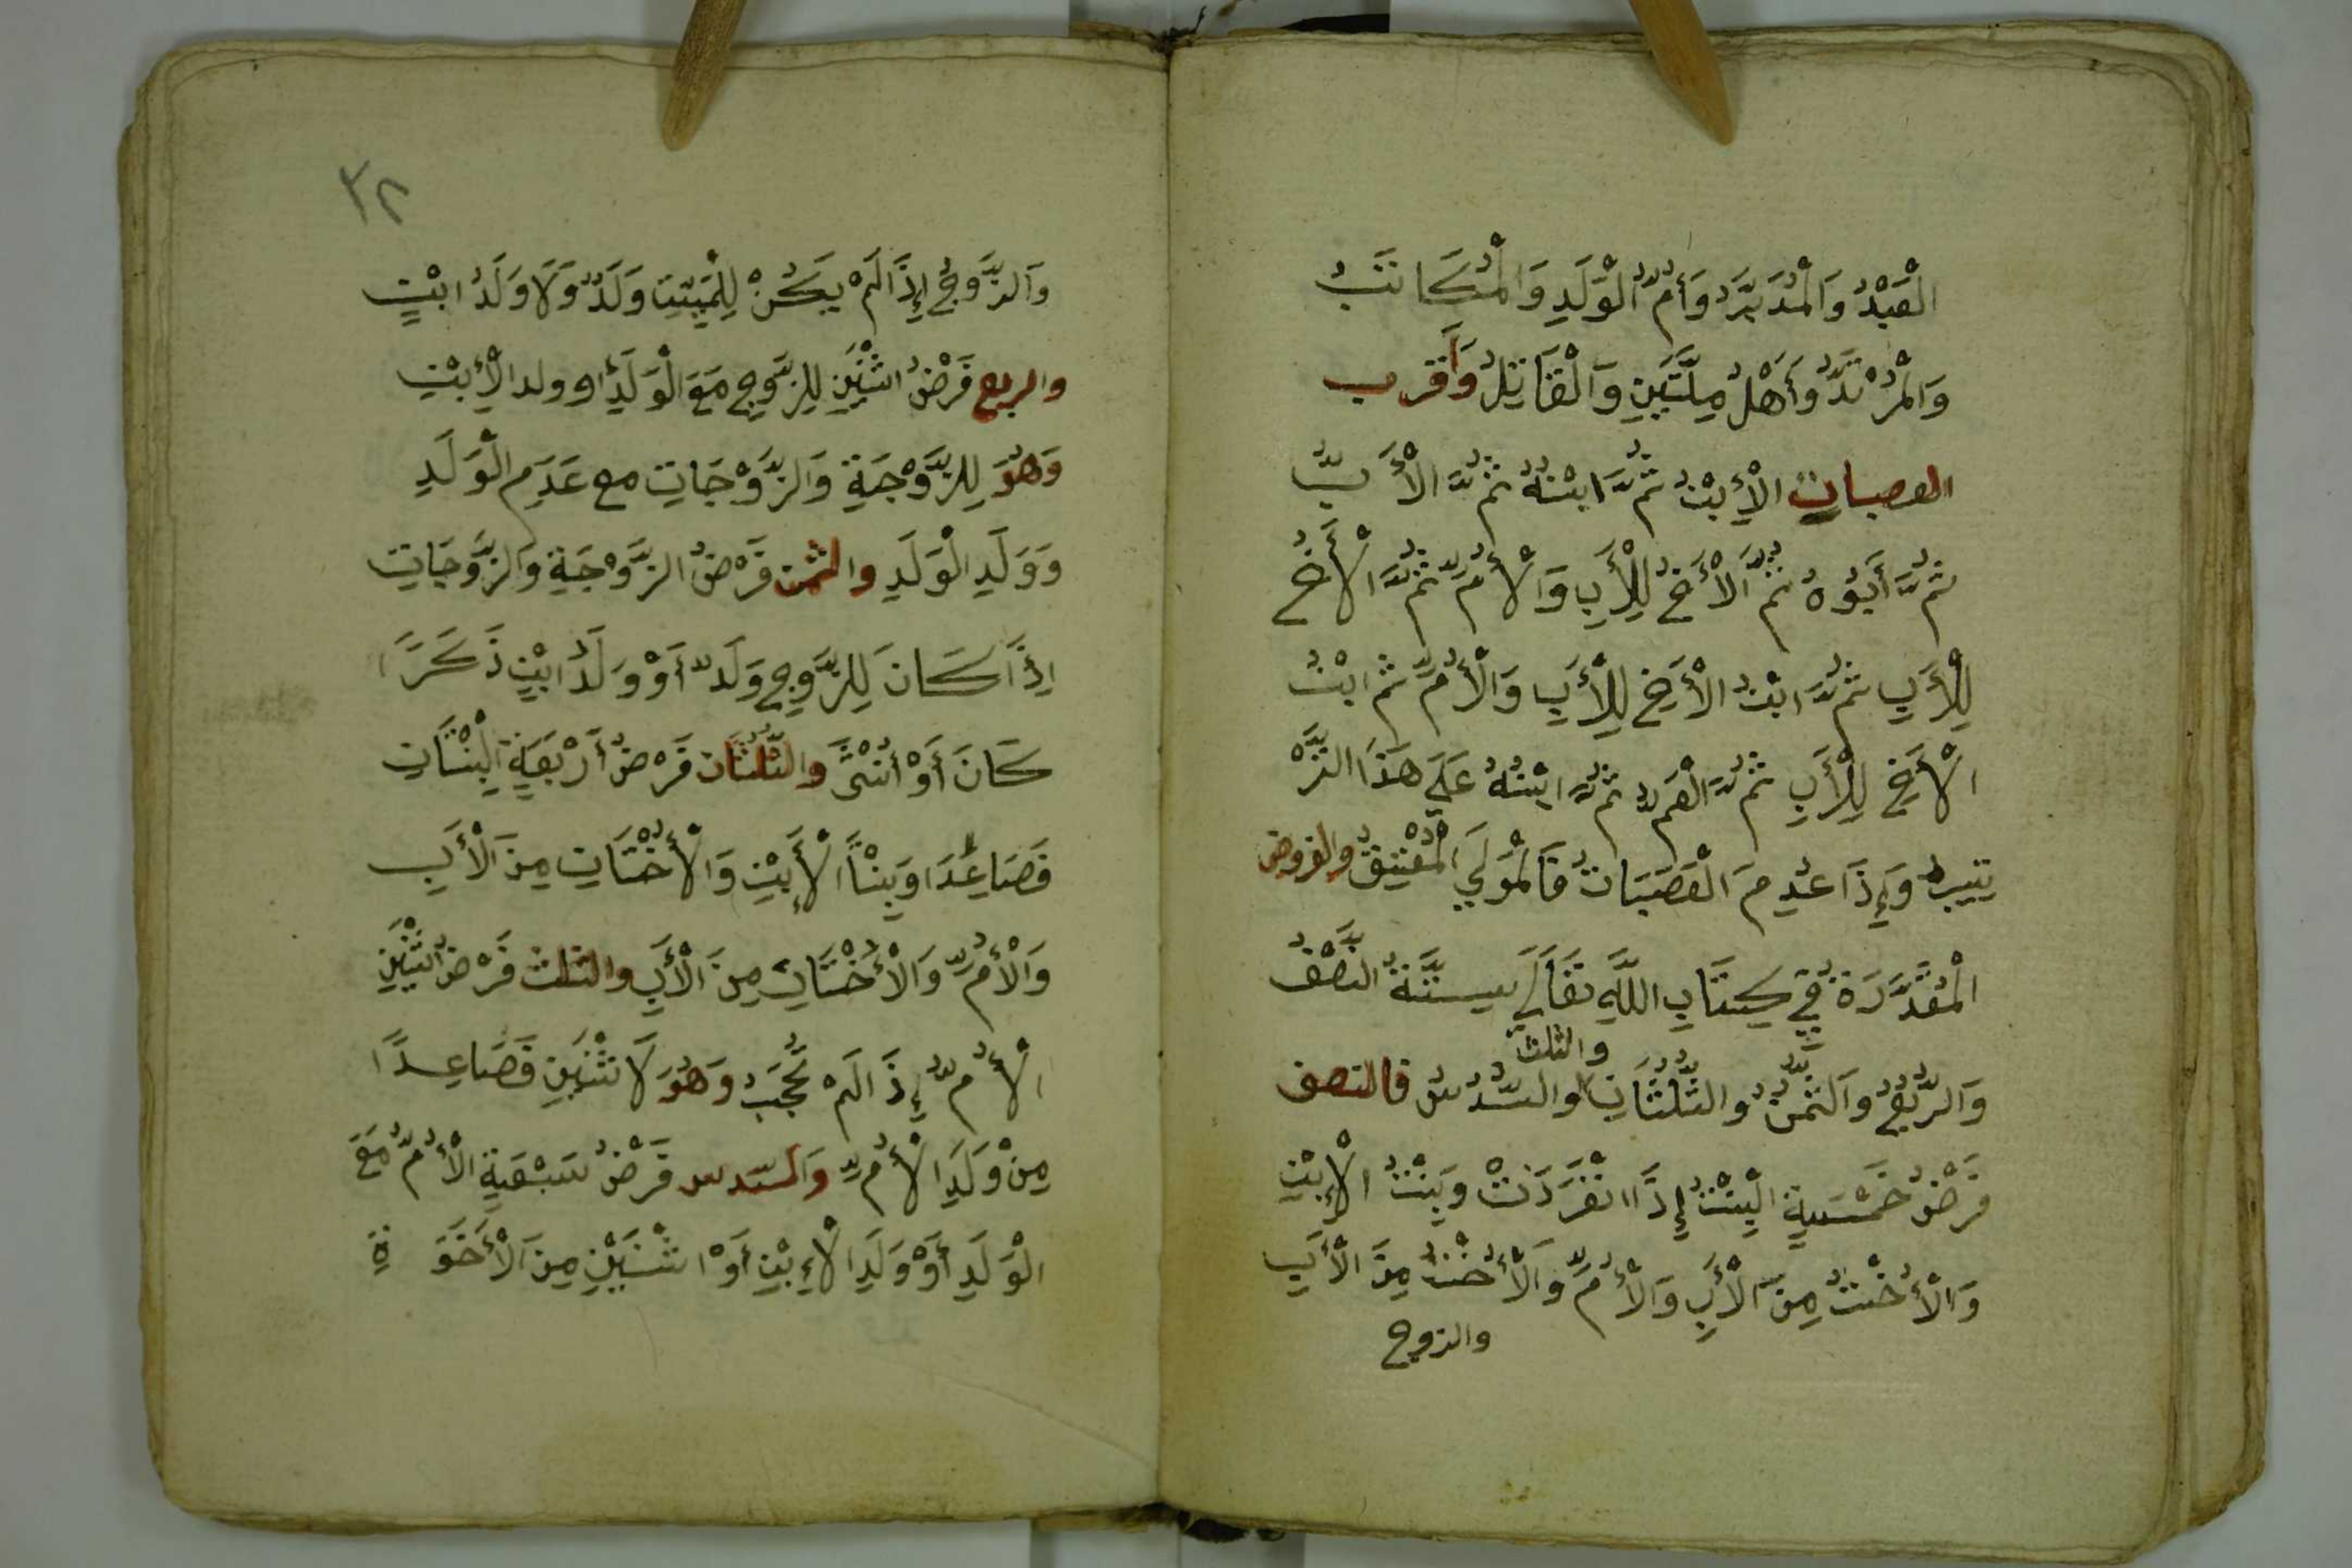 الْعَبْدُ وَالْمُدَبَّرُ وَأُمُّ الْوَلَدِ وَالْمُكَاتَبُ
وَالْمُرْتَدُّ وَأَهْلُ مِلَّتَيْنِ وَالْقَاتِلُ وَأَقْرب
العصبات الْإِبْنُ ثُمَّ ابْنُهُ ثُمَّ الْأَبُّ
ثُمَّ أَبُوُهُ ثُمَّ الْأَخُ لِلْأَبِ وَالْأُمِّ ثُمَّ الْأَخُ
لِلْأَبِ ثُمَّ ابْنُ الْأَخِ لِلْأَبِ وَالْأُمِّ ثم ابْنُ
الْأَخِ لِلْأَبِ ثُمَّ الْعَمُّ ثُمَّ ابْنُهُ عَلَى هَذَا التَّرْ
تِيبِ وَإِذَا عُدِمَ الْعَصَبَاتُ فَالْمَوْلَي الْمُعْتِقُ والفروض
الْمُقَدَّرَةُ فِي كِتَابِ اللَّهِ تَعَالَى سِتَّةُ النَّصْفُ
وَالرُّبُعُ وَالثُّمُنُ وَالثُّلُثَانِ والثلث وَالسُّدُسُ فالنصف
فَرْضُ خَمْسَةِ الْبِنْتُ إِذَا انْفَرَدَتْ وَبِنْتُ الْإِبْنِ
وَالْأُخْتُ مِنَ الْأَبِ وَالْأُمِّ وَالْأُخْتُ مِنَ الْأَبِ
والزوج
٣٢
وَالزَّوْجُ إِذَا لَمْ يَكُنْ لِلْمَيِّتِ وَلَدٌ وَلَا وَلَدُ ابْنٍ
والربع فَرْضُ اثْنَيْنِ لِلزَّوْجِ مَعَ الْوَلَدِ أو ولد الْإِبْنِ
وَهُوَ لِلزَّوْجَةِ وَالزَّوْجَاتِ مع عَدَمِ الْوَلَدِ
وَوَلَدِ الْوَلَدِ والثمن فَرْضُ الزَّوْجَةِ وَالزَّوْجَاتِ
إِذَا كَانَ لِلزَّوْجِ وَلَدٌ أَوْ وَلَدُ ابْنٍ ذَكَرًا
كَانَ أَوْ أُنْثًى وَالثُّلُثَان فَرْضُ أَرْبَعَةٍ الْبِنْتَانِ
فَصَاعِدًا وَبِنْتَا الْإِبْنِ وَالْأُخْتَانِ مِنَ الْأَبِ
وَالْأُمِّ وَالْأُخْتَانِ مِنَ الْأَبِ والثلث فَرْضُ اثْنَيْنِ
الْأُمُّ إِذَا لَمْ تُحْجَبْ وَهُوَ لَاثْنَيْنِ فَصَاعِدًا
مِنْ وَلَدِ الْأُمِّ وَالسدس فَرْضُ سَبْعَةٍ الْأُمُّ مَعَ
الْوَلَدِ أَوْ وَلَدِ الْإِبْنِ أَوْ اثْنَيْنِ مِنَ الْأَخَوَةِ